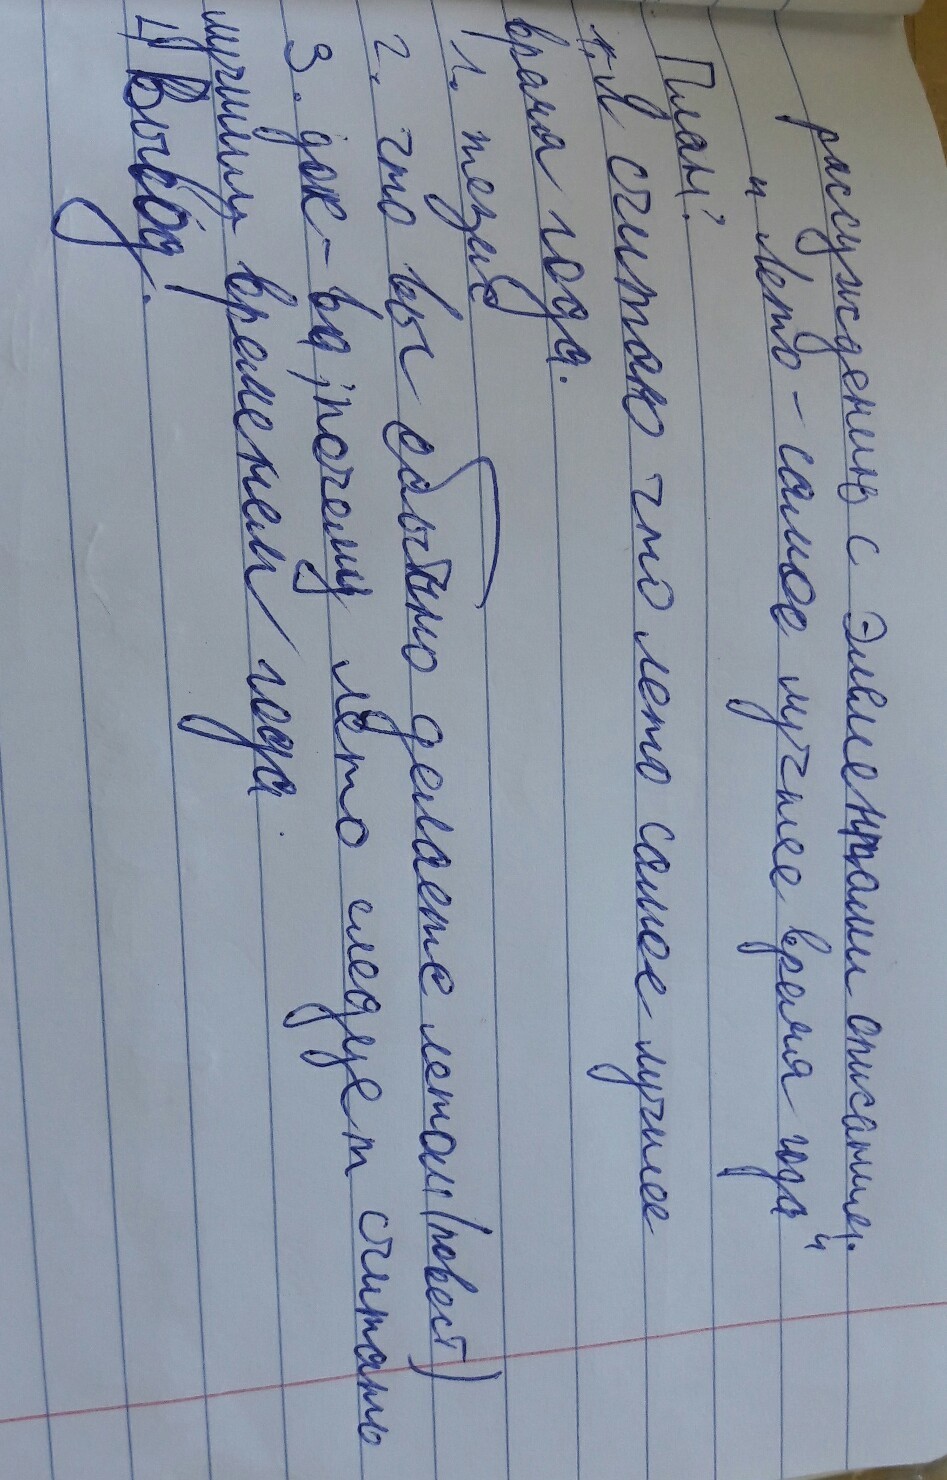 рассуждению с элементами описание.
"Лето - самое лучшее время года"
План:
1. Я считаю что лето самое лучшее
время года.
1. тезис
2. что вы обычно делаете летом (повест)
3. док-ва, почему лето следует считать
лучшим временем года.
4) Вывод.